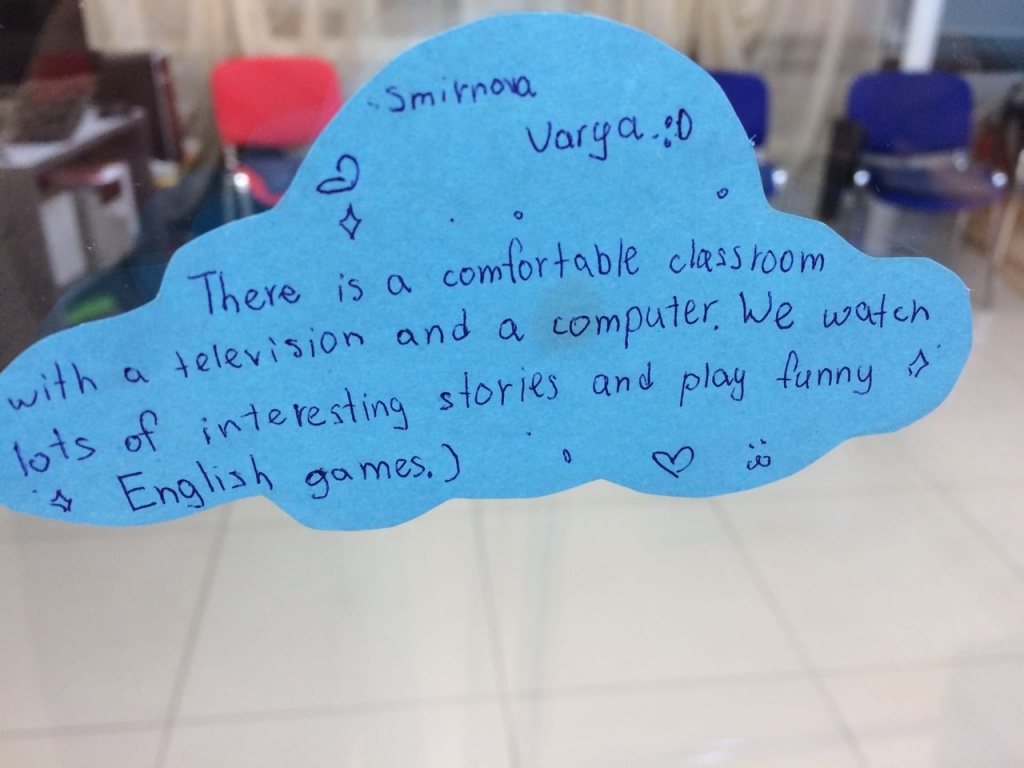 Smirnova
Varya.:D
There is a comfortable classroom
with a television and a computer. We watch
lots of interesting stories and play funny
English games.)